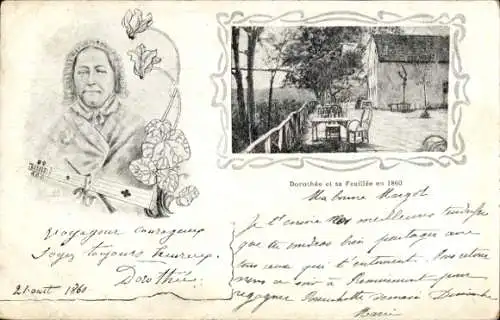 Dorothée et sa Feuillée en 1860
Ma bonne Margot
Je t'envoie mes meilleures
que tu voudras bien partager avec
tous ceux qui t'entourent. Nous
ce soir à Remiremont pour
regagner Dimanche
Marie
Voyageur courageux
Soyez toujours heureux.
Dorothée
21 août 1860